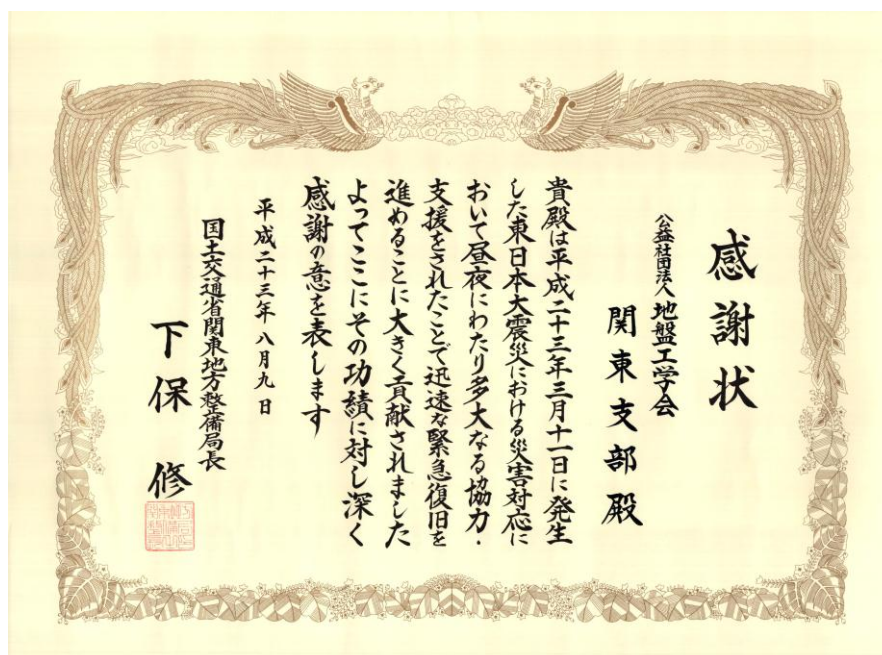 感謝状
公益社団法人 地盤工学会
関東支部殿
貴殿は平成二十三年三月十一日に発生
した東日本大震災における災害対応に
おいて昼夜にわたり多大なる協力・
支援をされたことで迅速な緊急復旧を
進めることに大きく貢献されました
よってここにその功績に対し深く
感謝の意を表します
平成二十三年八月九日
国土交通省関東地方整備局長
下保 修